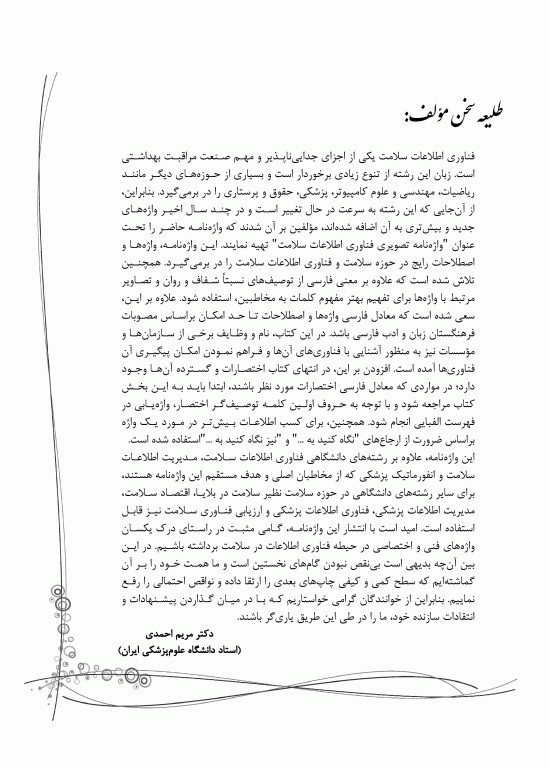 طلیعه سخن مؤلف:
فناوری اطلاعات سلامت یکی از اجزای جدایی‌ناپذیر و مهم صنعت مراقبت بهداشتی
است. زبان این رشته از تنوع زیادی برخوردار است و بسیاری از حوزه‌های دیگر مانند
ریاضیات، مهندسی و علوم کامپیوتر، پزشکی، حقوق و پرستاری را در برمی‌گیرد. بنابراین،
از آن‌جایی که این رشته به سرعت در حال تغییر است و در چند سال اخیر واژه‌های
جدید و بیش‌تری به آن اضافه شده‌اند، مؤلفین بر آن شدند که واژه‌نامه حاضر را تحت
عنوان "واژه‌نامه تصویری فناوری اطلاعات سلامت" تهیه نمایند. این واژه‌نامه، واژه‌ها و
اصطلاحات رایج در حوزه سلامت و فناوری اطلاعات سلامت را در برمی‌گیرد. همچنین
تلاش شده است که علاوه بر معنی فارسی از توصیف‌های نسبتاً شفاف و روان و تصاویر
مرتبط با واژه‌ها برای تفهیم بهتر مفهوم کلمات به مخاطبین، استفاده شود. علاوه بر این،
سعی شده است که معادل فارسی واژه‌ها و اصطلاحات تا حد امکان براساس مصوبات
فرهنگستان زبان و ادب فارسی باشد. در این کتاب، نام و وظایف برخی از سازمان‌ها و
مؤسسات نیز به منظور آشنایی با فناوری‌های آن‌ها و فراهم نمودن امکان پیگیری آن
فناوری‌ها آمده است. افزودن بر این، در انتهای کتاب اختصارات و گسترده آن‌ها وجود
دارد؛ در مواردی که معادل فارسی اختصارات مورد نظر باشند، ابتدا باید به این بخش
کتاب مراجعه شود و با توجه به حروف اولین کلمه توصیف‌گر اختصار، واژه‌یابی در
فهرست الفبایی انجام شود. همچنین، برای کسب اطلاعات بیش‌تر در مورد یک واژه
براساس ضرورت از ارجاع‌های "نگاه کنید به ..." و "نیز نگاه کنید به ..."استفاده شده است.
این واژه‌نامه، علاوه بر رشته‌های دانشگاهی فناوری اطلاعات سلامت، مدیریت اطلاعات
سلامت و انفورماتیک پزشکی که از مخاطبان اصلی و هدف مستقیم این واژه‌نامه هستند،
برای سایر رشته‌های دانشگاهی در حوزه سلامت نظیر سلامت در بلایا، اقتصاد سلامت،
مدیریت اطلاعات پزشکی، فناوری اطلاعات پزشکی و ارزیابی فناوری سلامت نیز قابل
استفاده است. امید است با انتشار این واژه‌نامه، گامی مثبت در راستای درک یکسان
واژه‌های فنی و اختصاصی در حیطه فناوری اطلاعات در سلامت برداشته باشیم. در این
بین آن‌چه بدیهی است بی‌نقص نبودن گام‌های نخستین است و ما همت خود را بر آن
گماشته‌ایم که سطح کمی و کیفی چاپ‌های بعدی را ارتقا داده و نواقص احتمالی را رفع
نماییم. بنابراین از خوانندگان گرامی خواستاریم که با در میان گذاردن پیشنهادات و
انتقادات سازنده خود، ما را در طی این طریق یاری‌گر باشند.
دکتر مریم احمدی
(استاد دانشگاه علوم‌پزشکی ایران)